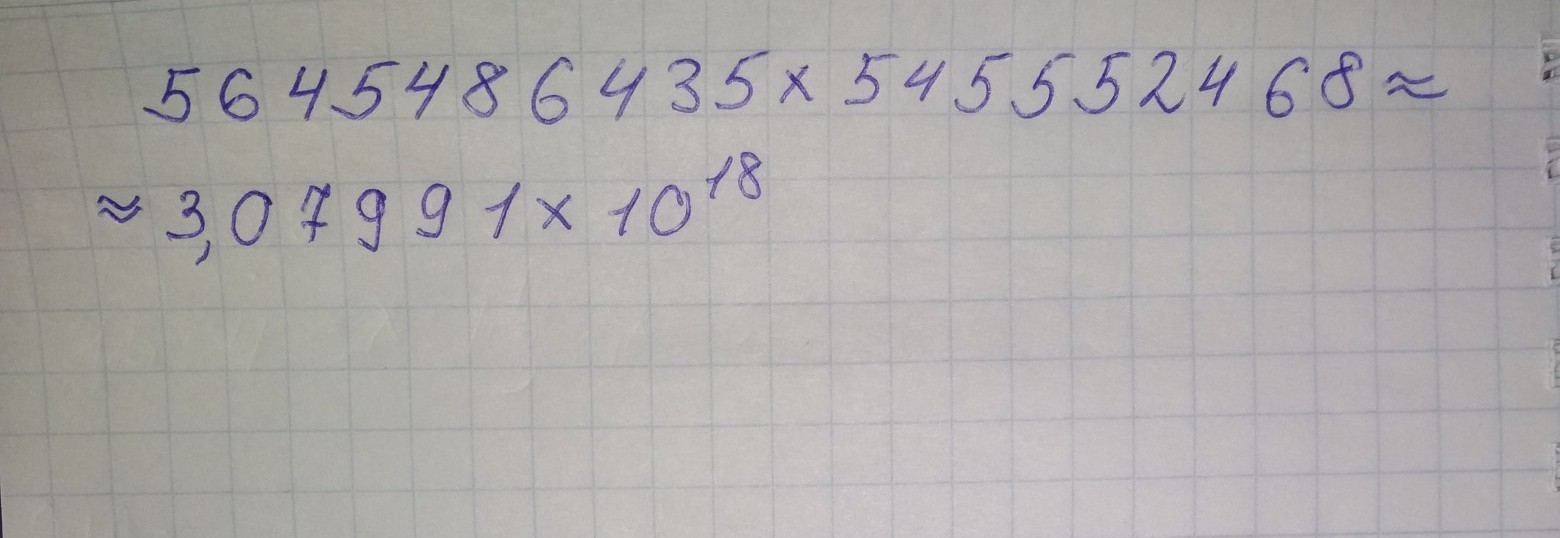 5645486435×545552468≈
≈3,07991×10¹⁸